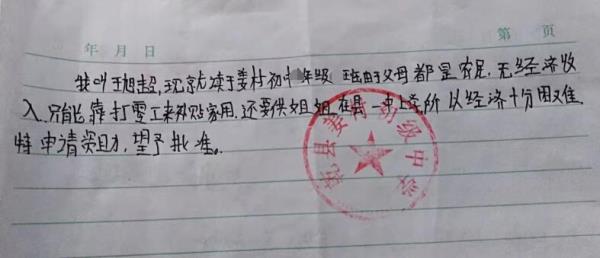 年 月 日 第 页
我叫王旭超,现就读于姜村初中年级 班由于父母都是农民,无经济收
入,只能靠打零工来补贴家用,还要供姐姐在县一中上学所以经济十分困难.
特申请资助,望予批准。
乾县姜村初级中学